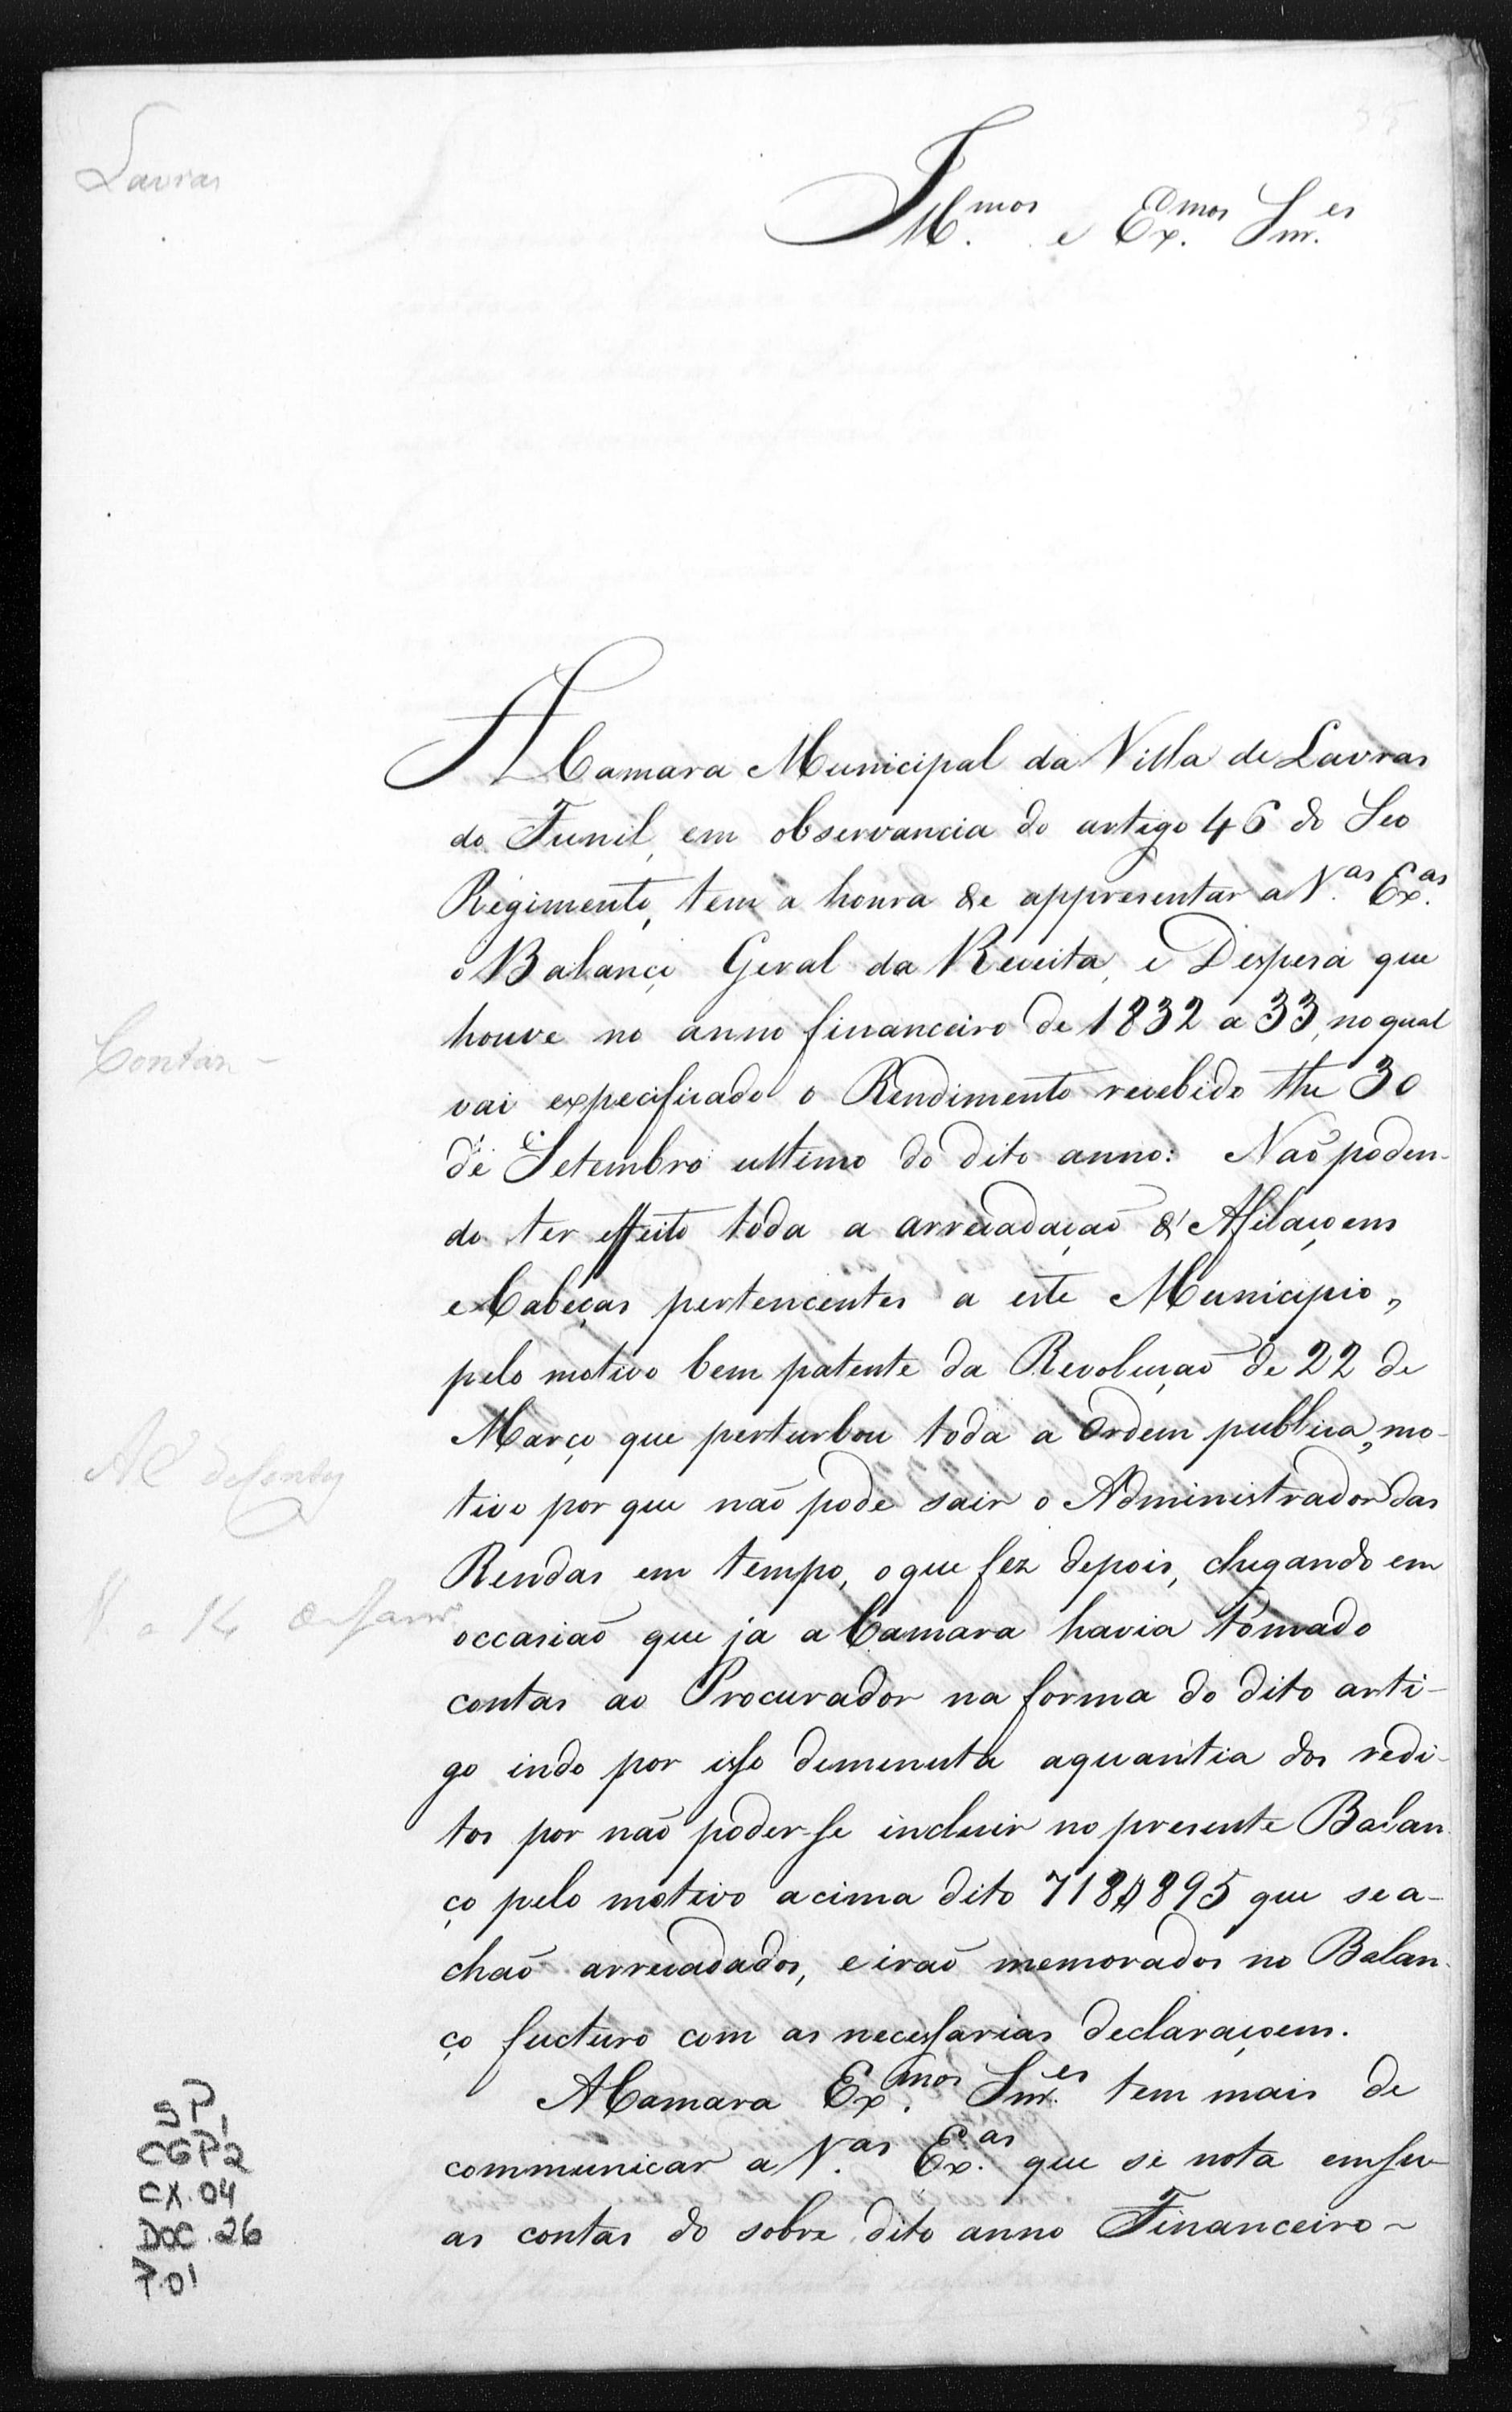 Lavras
Illmos e Exmos Snr.es
A Camara Municipal da Villa de Lavras
do Funil, em observancia do artigo 46 do Seo
Regimento, tem a honra de appresentar a V.as Ex.as
o Balanço Geral da Receita, e Despesa que
houve no anno financeiro de 1832 a 33, no qual
vai expecificado o Rendimento recebido the 30
de Setembro ultimo do dito anno: Naõ poden-
do ter effeito toda a arrecadaçaõ d'Afilaçoens
e Cabeças pertencentes a este Municipio,
pelo motivo bem patente da Revoluçaõ de 22 de
Março que perturbou toda a Ordem publica, mo-
tivo por que naõ pode sair o Administrador das
Rendas em tempo, o que fez depois, chegando em
occasiaõ que ja a Camara havia tomado
contas ao Procurador na forma do dito arti-
go indo por isso demenuta a quantia dos redi-
tos por naõ poder-se incluir no presente Balan-
ço pelo motivo acima dito 718$895 que se a-
chaõ arrecadados, e iraõ memorados no Balan-
ço fucturo com as necessarias declaraçoens.
A Camara Ex.mos Snr.es tem mais de
communicar a V.as Ex.as que se nota em su-
as contas do sobre dito anno Financeiro ~
Contas -
SP
CGP2
CX. 04
DOC. 26
P.01